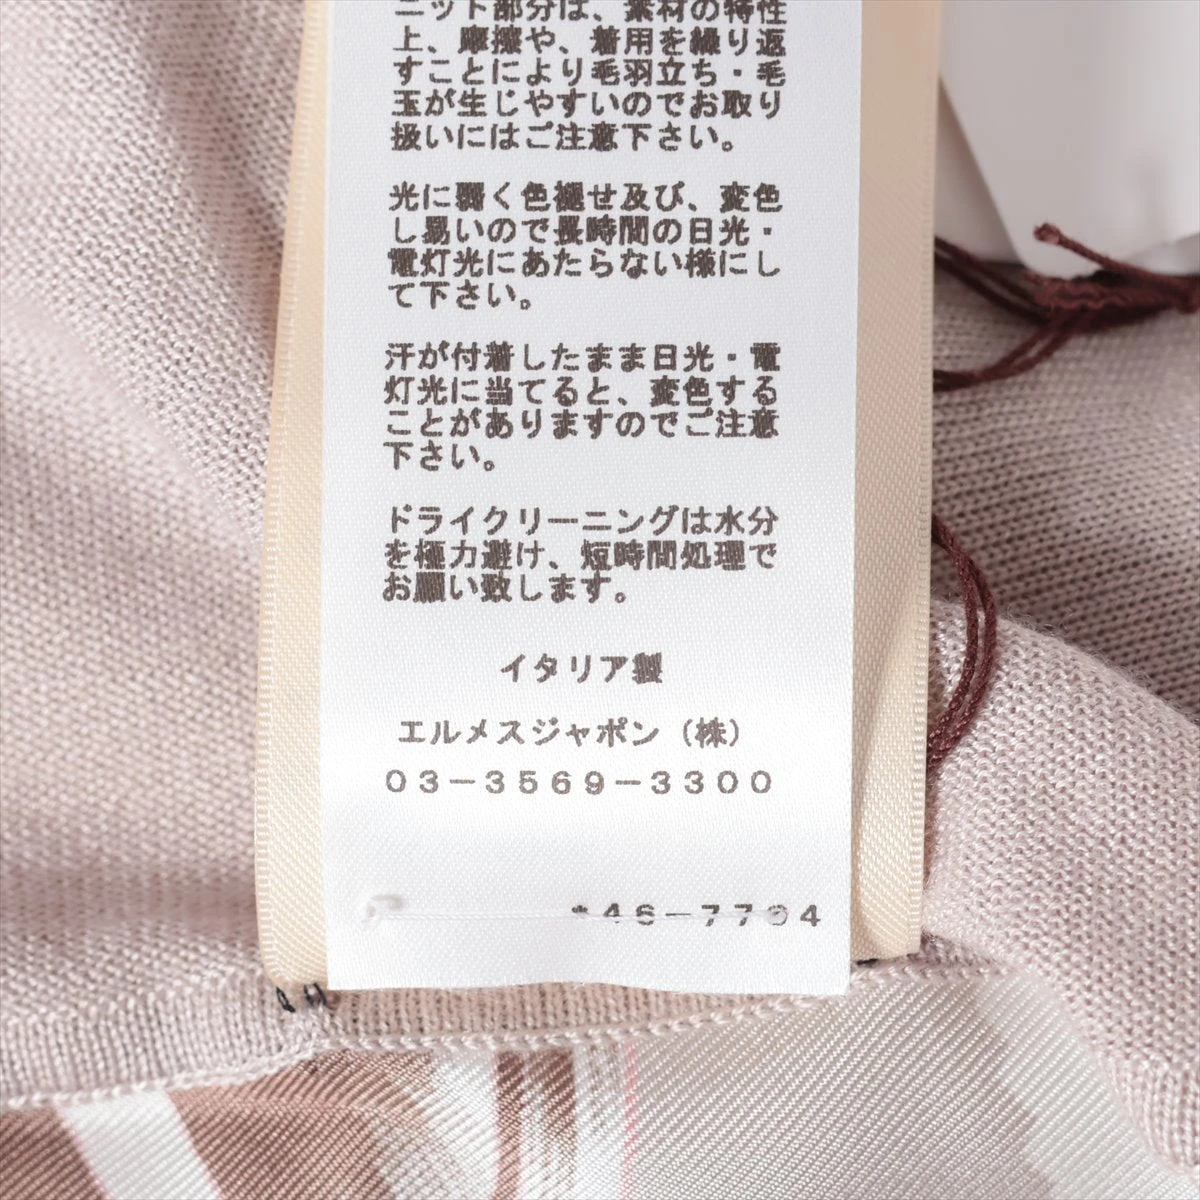 ニット部分は、素材の特性
上、摩擦や、着用を繰り返
すことにより毛羽立ち・毛
玉が生じやすいのでお取り
扱いにはご注意下さい。
光に弱く色褪せ及び、変色
し易いので長時間の日光・
電灯光にあたらない様にし
て下さい。
汗が付着したまま日光・電
灯光に当てると、変色する
ことがありますのでご注意
下さい。
ドライクリーニングは水分
を極力避け、短時間処理で
お願い致します。
イタリア製
エルメスジャポン（株）
03-3569-3300